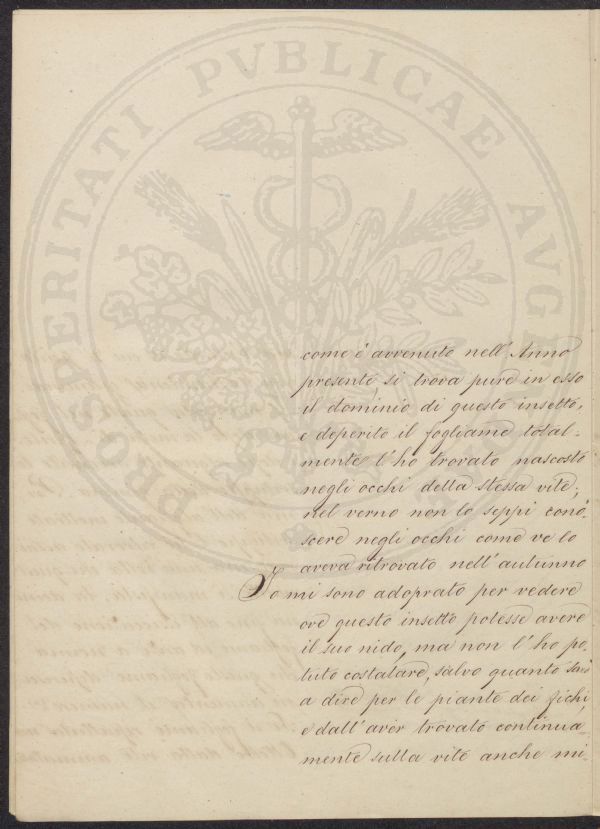 come è avvenuto nell'Anno
presente, si trova pure in esso
il dominio di questo insetto,
e deperito il fogliame total-
mente l'ho trovato nascosto
negli occhi della stessa vite;
nel verno non lo seppi cono-
scere negli occhi come ve lo
aveva ritrovato nell'autunno
Io mi sono adoprato per vedere
ove questo insetto potesse avere
il suo nido, ma non l'ho po-
tuto costatare, salvo quanto sarò
a dire per le piante dei fichi,
e dall'aver trovato continua-
mente sulla vite anche mi-
PROSPERITATI PVBLICAE AVGE